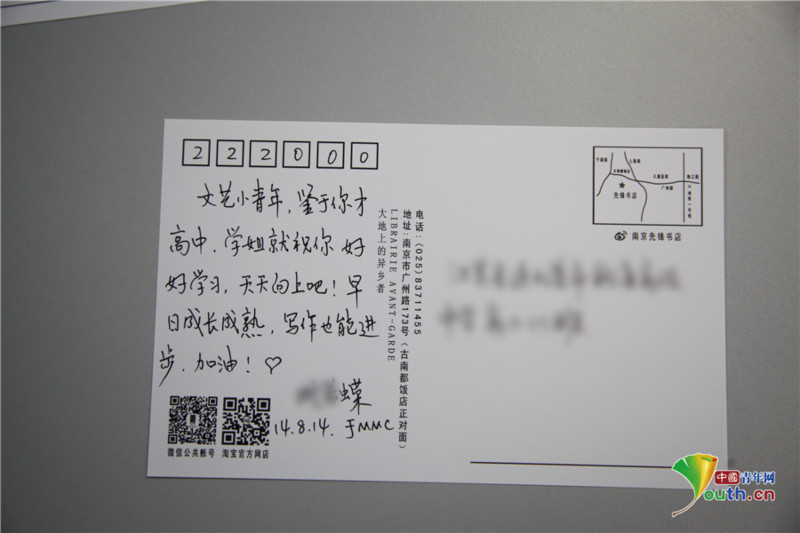 222000
文艺小青年,鉴于你才
高中,学姐就祝你好
好学习,天天向上吧!早
日成长成熟,写作也能进
步,加油!♡
蝶
14.8.14.于MMC
微信公共账号 淘宝官方网店
大地上的异乡者
LIBRAIRIE AVANT-GARDE
地址:南京市广州路173号(古南都饭店正对面)
电话:(025)83711455
先锋书店
广州路
南京先锋书店
中国青年网
Youth.cn